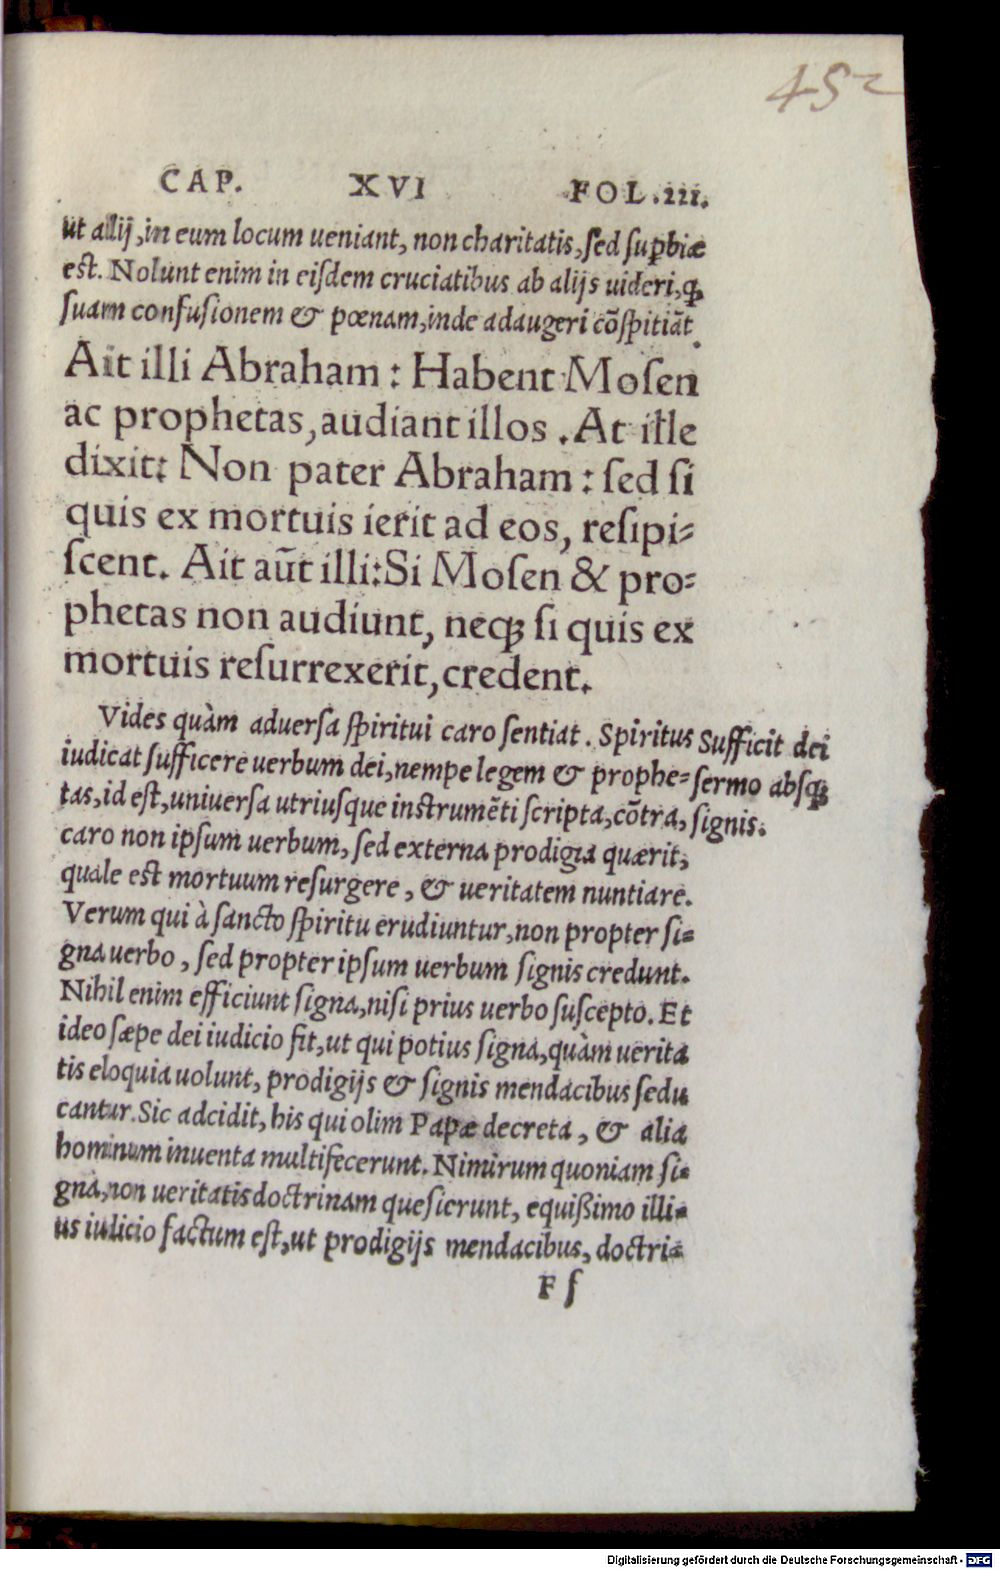 452
CAP. XVI FOL.iii.
ut alij, in eum locum ueniant, non charitatis, ſed ſuꝑbiæ
eſt. Nolunt enim in eiſdem cruciatibus ab alijs uideri, ꝗ
ſuam confuſionem & pœnam, inde adaugeri cōſpitiāt.
Ait illi Abraham: Habent Moſen
ac prophetas, audiant illos. At ille
dixit: Non pater Abraham: ſed ſi
quis ex mortuis ierit ad eos, reſipi-
ſcent. Ait aūt illi: Si Moſen & pro-
phetas non audiunt, neqꝫ ſi quis ex
mortuis reſurrexerit, credent.
Vides quàm aduerſa ſpiritui caro ſentiat. Spiritus
iudicat ſufficere uerbum dei, nempe legem & prophe-
tas, id eſt, uniuerſa utriuſque inſtrumēti ſcripta, cōtra,
caro non ipſum uerbum, ſed externa prodigia quærit,
quale eſt mortuum reſurgere, & ueritatem nuntiare.
Verum qui à ſancto ſpiritu erudiuntur, non propter ſi-
gna uerbo, ſed propter ipſum uerbum ſignis credunt.
Nihil enim efficiunt ſigna, niſi prius uerbo ſuſcepto. Et
ideo ſæpe dei iudicio fit, ut qui potius ſigna, quàm uerita
tis eloquia uolunt, prodigijs & ſignis mendacibus ſedu
cantur. Sic adcidit, his qui olim Papæ decreta, & alia
hominum inuenta multifecerunt. Nimirum quoniam ſi-
gna, non ueritatis doctrinam queſierunt, equißimo illi-
us iudicio factum eſt, ut prodigijs mendacibus, doctri-
Sufficit dei
ſermo abſqꝫ
ſignis.
F ſ
Digitalisierung gefördert durch die Deutsche Forschungsgemeinschaft - DFG